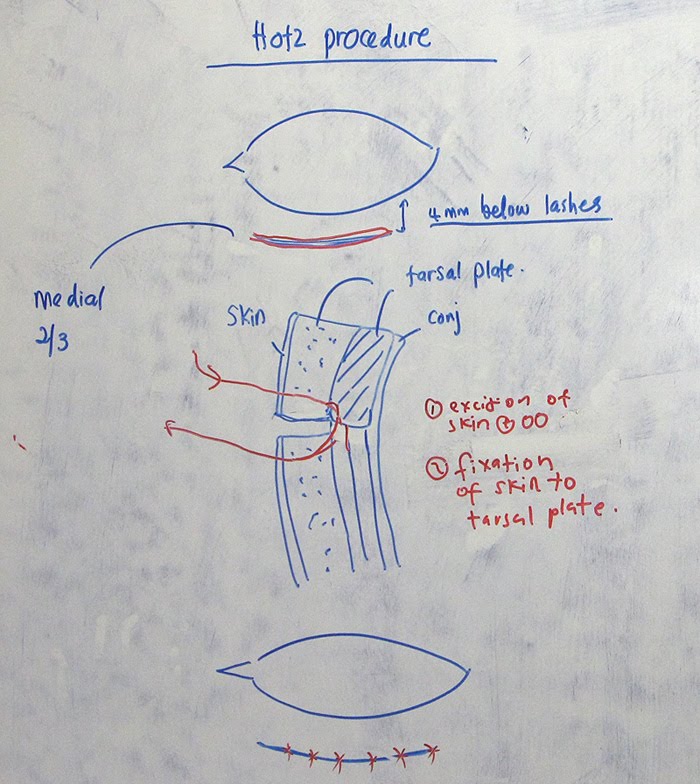 Hotz procedure
4mm below lashes
Medial
2/3
tarsal plate.
skin
conj
① excision of
skin ⊕ OO
② fixation
of skin to
tarsal plate.